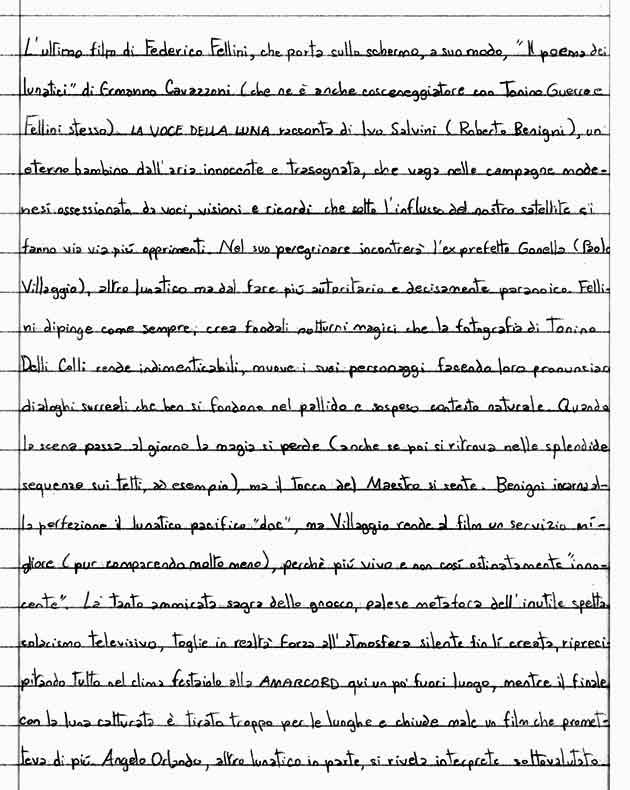 L'ultimo film di Federico Fellini, che porta sullo schermo, a suo modo, "Il poema dei
lunatici" di Ermanno Cavazzoni (che ne è anche cosceneggiatore con Tonino Guerra e
Fellini stesso). LA VOCE DELLA LUNA racconta di Ivo Salvini (Roberto Benigni), un
eterno bambino dall'aria innocente e trasognata, che vaga nelle campagne mode-
nesi ossessionato da voci, visioni e ricordi che sotto l'influsso del nostro satellite si
fanno via via più opprimenti. Nel suo peregrinare incontrerà l'ex prefetto Gonella (Paolo
Villaggio), altro lunatico ma dal fare più autoritario e decisamente paranoico. Felli-
ni dipinge come sempre, crea fondali notturni magici che la fotografia di Tonino
Delli Colli rende indimenticabili, muove i suoi personaggi facendo loro pronunciar
dialoghi surreali che ben si fondono nel pallido e sospeso contesto naturale. Quando
la scena passa al giorno la magia si perde (anche se poi si ritrova nelle splendide
sequenze sui tetti, ad esempio), ma il tocco del Maestro si sente. Benigni incarna al-
la perfezione il lunatico pacifico "doc", ma Villaggio rende al film un servizio mi-
gliore (pur comparendo molto meno), perchè più vivo e non così ostinatamente "inno-
cente". La tanto ammirata sagra dello gnocco, palese metafora dell'inutile spetta-
colarismo televisivo, toglie in realtà forza all'atmosfera silente fin lì creata, ripreci-
pitando tutto nel clima festaiolo alla AMARCORD qui un po' fuori luogo, mentre il finale
con la luna catturata è tirato troppo per le lunghe e chiude male un film che promet-
teva di più. Angelo Orlando, altro lunatico in parte, si rivela interprete sottovalutato